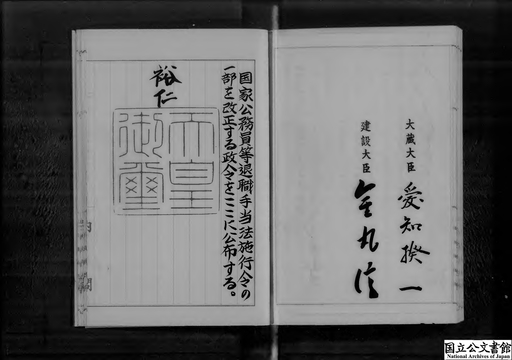 大蔵大臣 愛知揆一
建設大臣 金丸信
国家公務員等退職手当法施行令の
一部を改正する政令をここに公布する。
裕仁
天皇
御璽
内閣
国立公文書館
National Archives of Japan